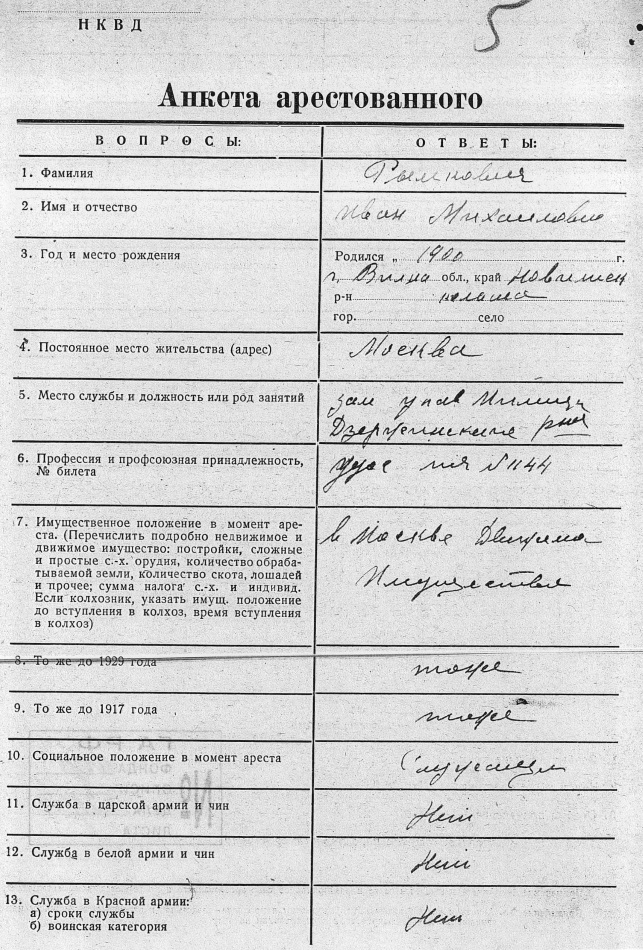 5
НКВД
Анкета арестованного
ВОПРОСЫ:
ОТВЕТЫ:
1. Фамилия
Рымкович
2. Имя и отчество
Иван Михайлович
3. Год и место рождения
Родился „ 1900 г.
г. Вилна обл., край
р-н
гор. село
4. Постоянное место жительства (адрес)
Москва
5. Место службы и должность или род занятий
зам
Дзержинского
6. Профессия и профсоюзная принадлежность,
№ билета
№ 1144
7. Имущественное положение в момент аре-
ста. (Перечислить подробно недвижимое и
движимое имущество: постройки, сложные
и простые с.-х. орудия, количество обраба-
тываемой земли, количество скота, лошадей
и прочее; сумма налога с.-х. и индивид.
Если колхозник, указать имущ. положение
до вступления в колхоз, время вступления
в колхоз)
в Москве
Имущества
8. То же до 1929 года
тоже
9. То же до 1917 года
тоже
10. Социальное положение в момент ареста
Служащий
11. Служба в царской армии и чин
Нет
12. Служба в белой армии и чин
Нет
13. Служба в Красной армии:
а) сроки службы
б) воинская категория
Нет
ГАРФ
ФОНДА
№
ЛИСТА